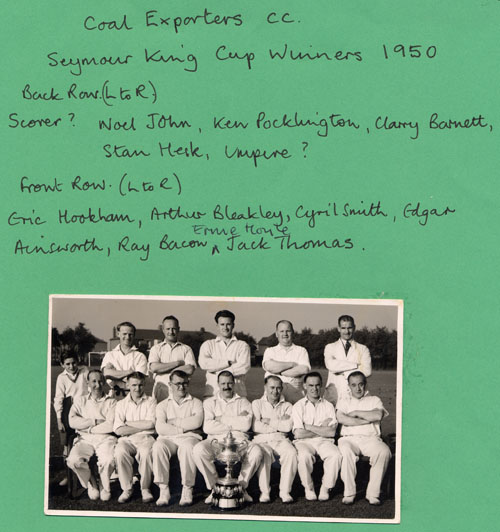 Coal Exporters CC.
Seymour King Cup Winners 1950
Back Row. (L to R)
Scorer? Noel John, Ken Pocklington, Clarry Barnett,
Stan Hesk, Umpire?
Front Row. (L to R)
Eric Hookham, Arthur Bleakley, Cyril Smith, Edgar
Ernie Hoyle
Ainsworth, Ray Bacon ^ Jack Thomas.